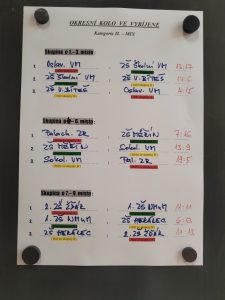 OKRESNÍ KOLO VE VYBÍJENÉ
Kategorie II. – MIX
Skupina o 1.- 3. místo:
1. Oslav. VM : ZŠ Školní VM 13:17
2. ZŠ Školní VM : ZŠ V.BÍTEŠ
3. ZŠ V.BÍTEŠ : Oslav. VM
Skupina o 4.- 6. místo:
1. Palach. ZR : ZŠ MĚŘÍN 7:16
2. ZŠ MĚŘÍN : Sokol. VM 13:9
3. Sokol. VM : Pal. ZR
Skupina o 7.- 9. místo:
1. 2.ZŠ ŽĎÁR : 1.ZŠ NMnM 11:11
2. 1.ZŠ NMnM : ZŠ HERÁLEC
3. ZŠ HERÁLEC : 2.ZŠ ŽĎÁR